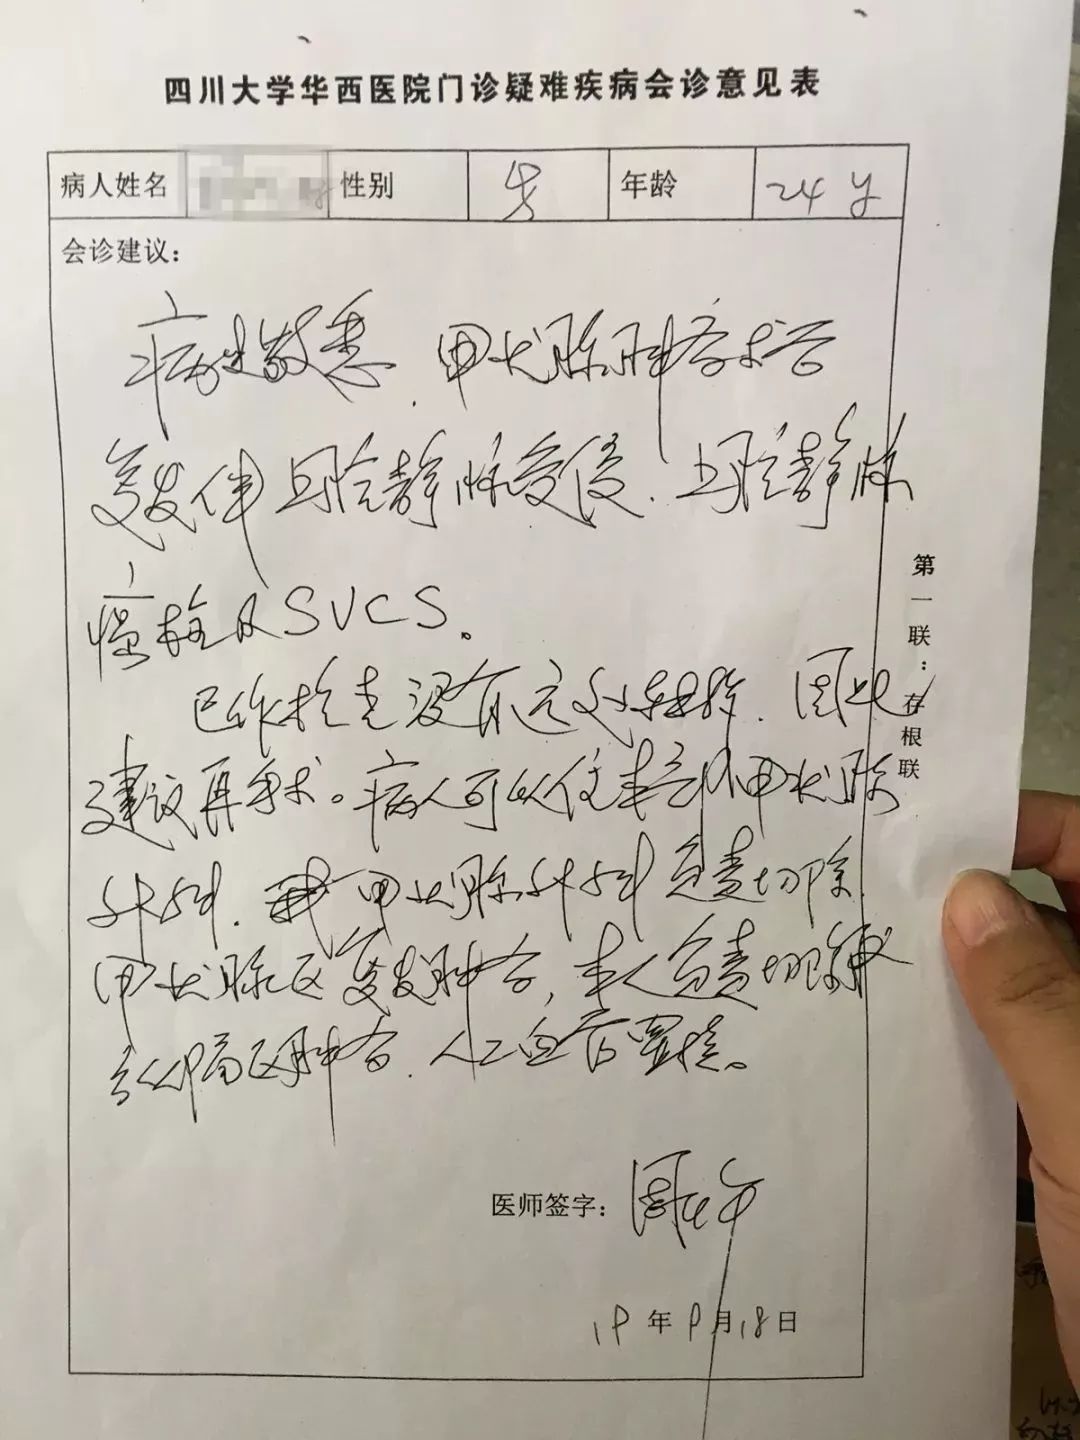 四川大学华西医院门诊疑难疾病会诊意见表
病人姓名 性别 男 年龄 24岁
会诊建议：
病史敬悉，甲状腺肿瘤术后
复发伴上腔静脉受侵，上腔静脉
癌栓及SVCS。
已作检查没有远处转移，因此
建议再手术。病人可以住本部甲状腺
外科，甲状腺外科负责切除
甲状腺区复发肿瘤，本人负责切除
纵隔区肿瘤，人工血管置换。
医师签字：
19年9月18日
第一联：存根联